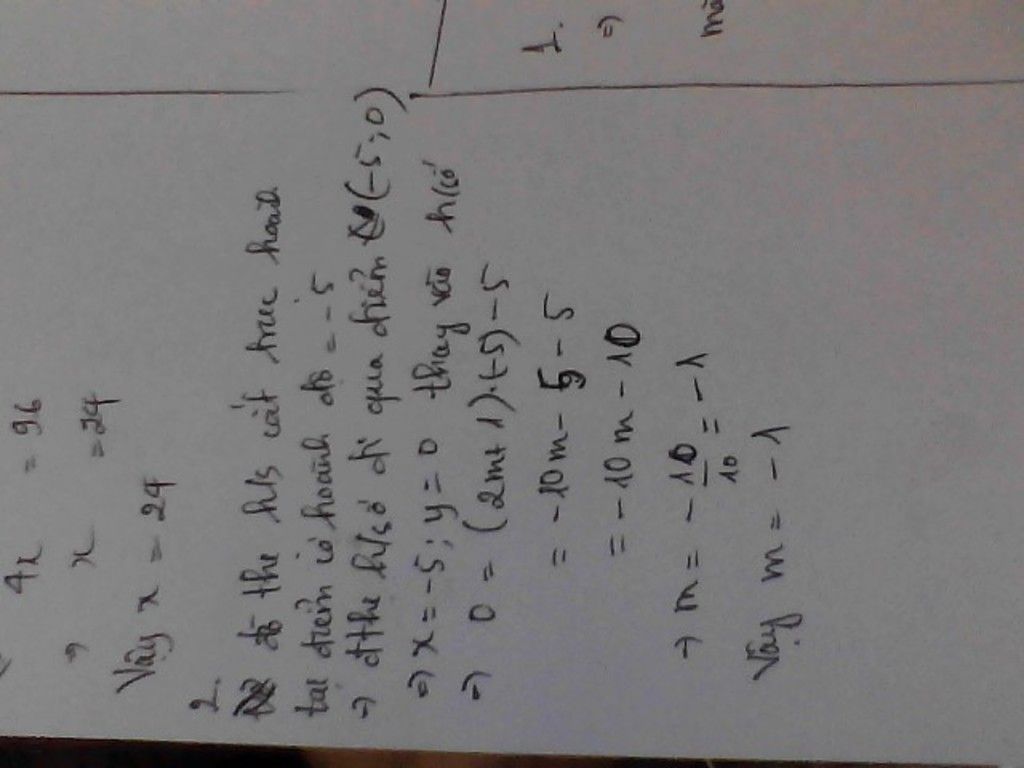 4x = 96
⇒ x = 24
Vậy x = 24
2. đồ thị h/s cắt trục hoành
tại điểm có hoành độ = -5
⇒ đthị h/số đi qua điểm (-5; 0)
⇒ x = -5; y = 0 thay vào h/số
⇒ 0 = (2m+1).(-5) - 5
= -10m - 5 - 5
= -10m - 10
→ m = - 10/10 = -1
Vậy m = -1
1.
⇒